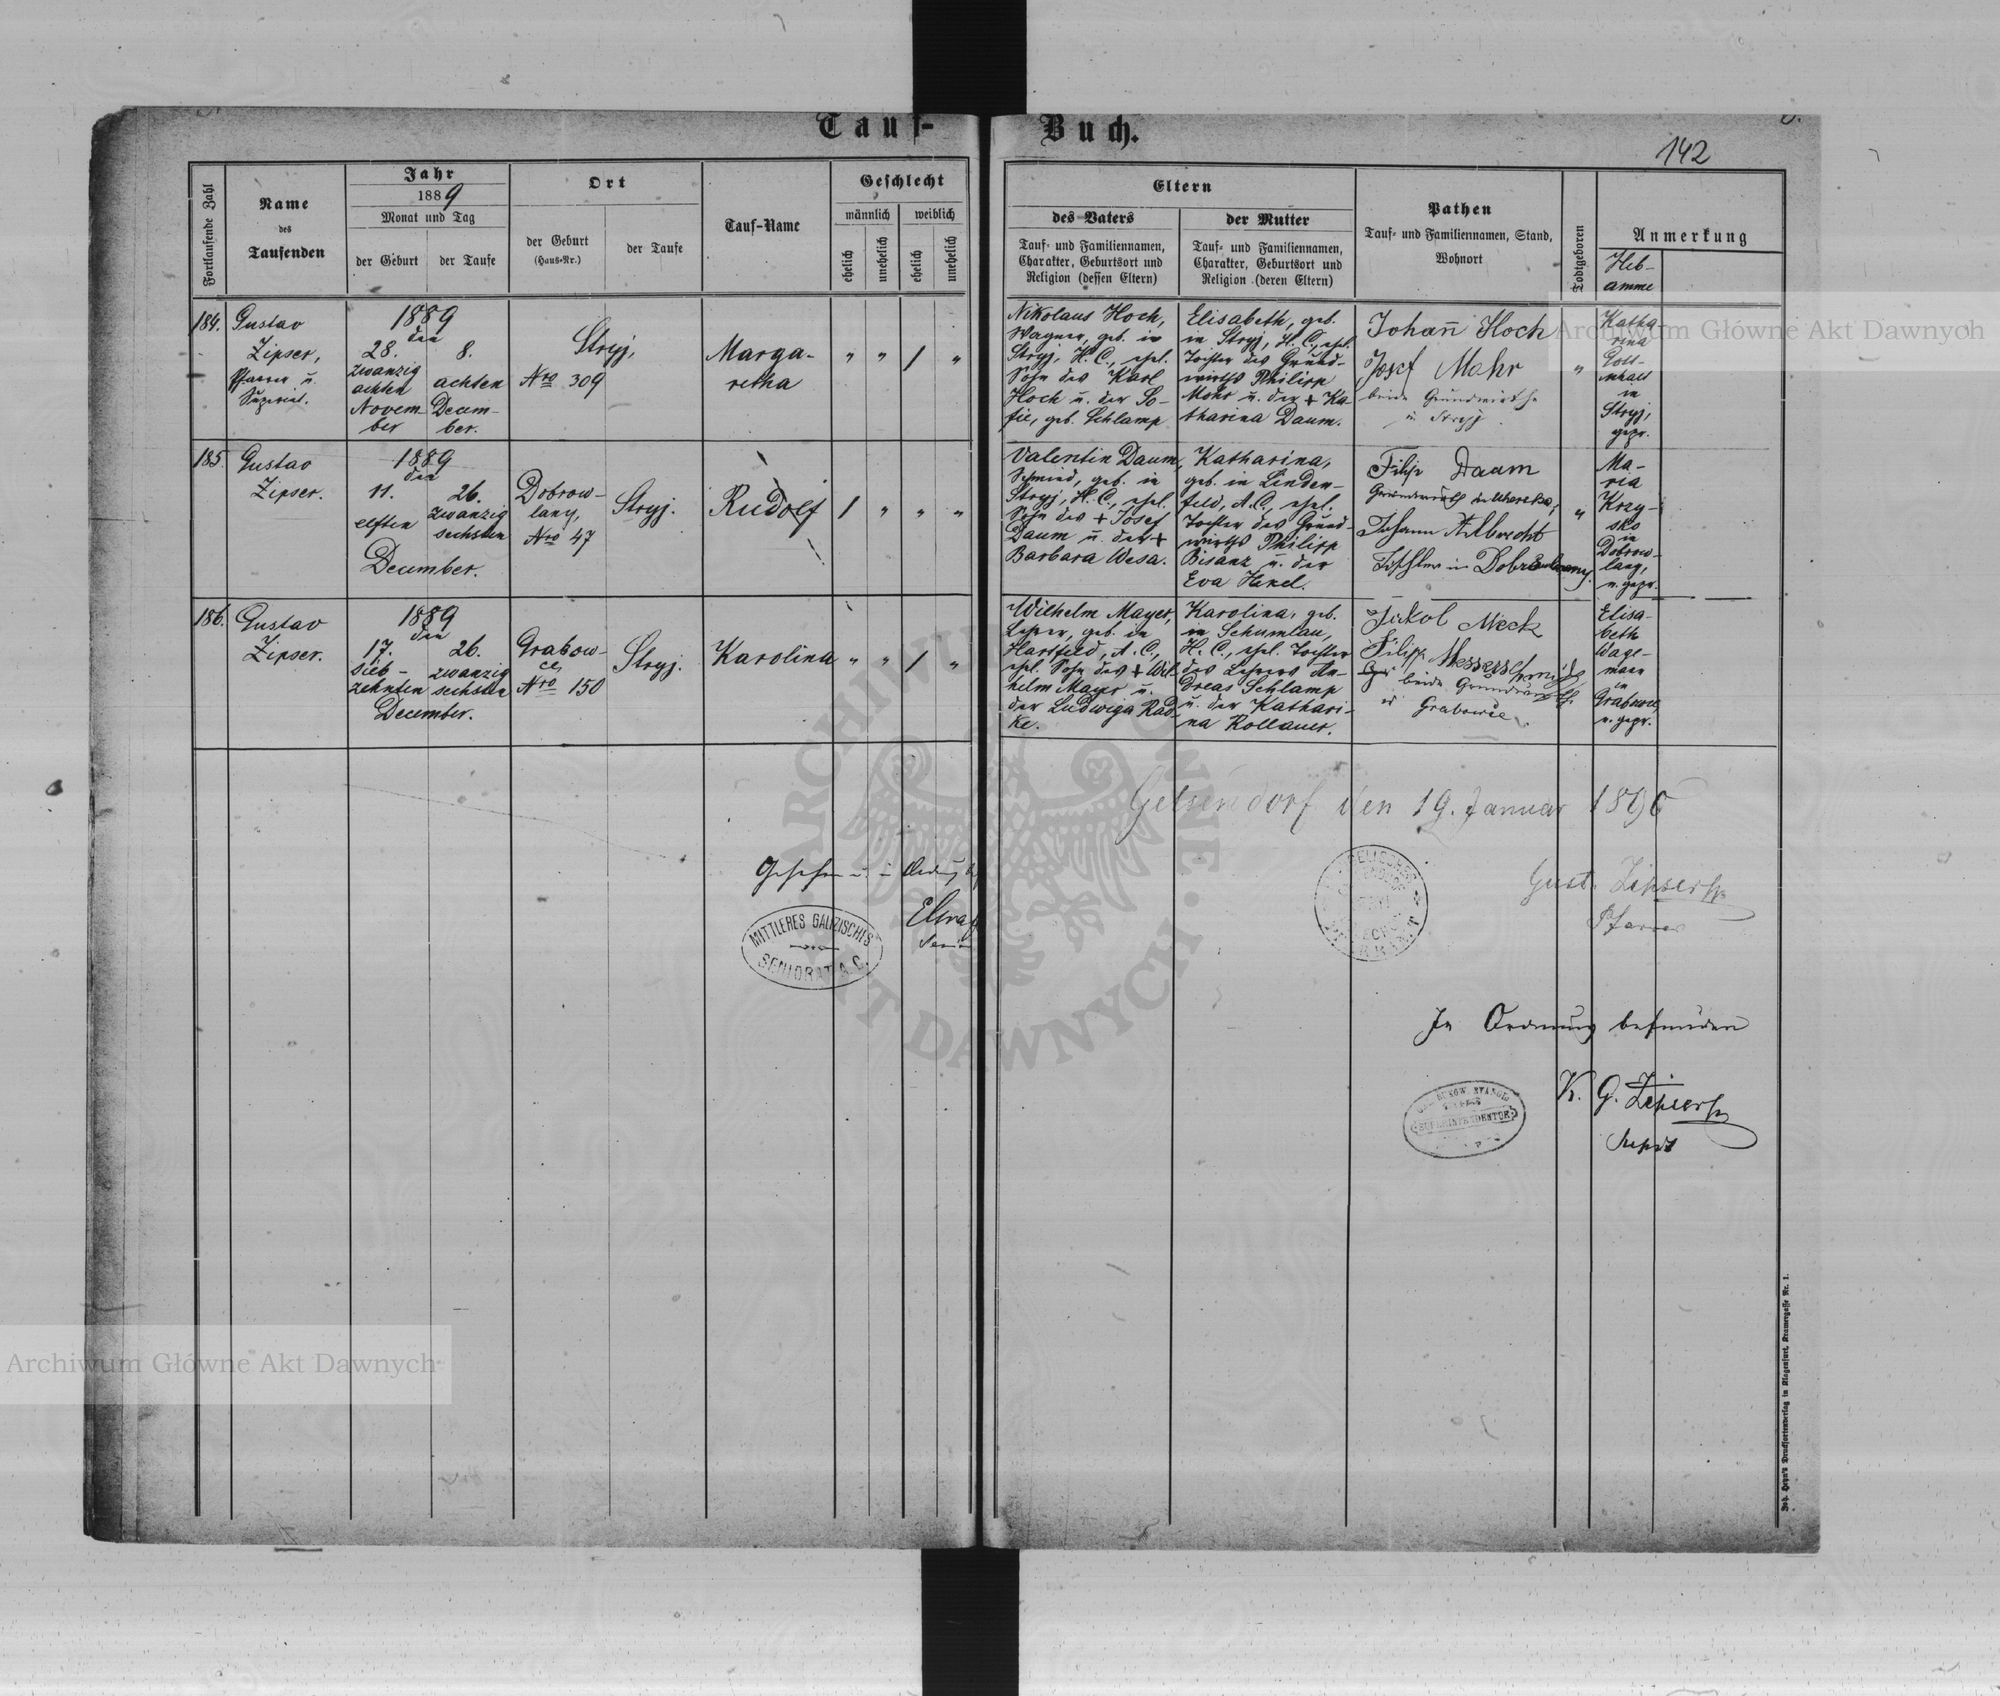 Tauf-Buch.
142
Fortlaufende Zahl
Name
des
Taufenden
Jahr
1889
Monat und Tag
der Geburt
der Taufe
Ort
der Geburt
(Haus-Nr.)
der Taufe
Tauf-Name
Geschlecht
männlich
weiblich
ehelich
unehelich
ehelich
unehelich
Eltern
des Vaters
Tauf- und Familiennamen,
Charakter, Geburtsort und
Religion (dessen Eltern)
der Mutter
Tauf- und Familiennamen,
Charakter, Geburtsort und
Religion (deren Eltern)
Pathen
Tauf- und Familiennamen, Stand,
Wohnort
Todtgeboren
Anmerkung
Heb-
amme
184.
Gustav
Zipser,
Pfarrer u.
1889
den
28.
zwanzig
achten
Novem-
ber
8.
achten
Decem-
ber.
Stryj,
Nro 309
Marga-
retha
" " 1 "
Nikolaus Hoch,
Wagner, geb. in
Stryj, H. C., ehel.
Sohn des Karl
Hoch u. der So-
fie, geb. Schlamp
Elisabeth, geb.
in Stryj, H. C., ehel.
Tochter des Grund-
wirths Philipp
Mohr u. der + Ka-
tharina Daum.
Johann Hoch
Josef Mohr
beide Grundwirthe
in Stryj
"
Katha
rina
Gott-
in
Stryj,
gepr.
185.
Gustav
Zipser.
1889
den
11.
elften
26.
zwanzig
sechsten
December.
Dobrow-
lany,
Nro 47
Stryj.
Rudolf
1 " " "
Valentin Daum,
Schmied, geb. in
Stryj, H. C., ehel.
Sohn des + Josef
Daum u. der +
Barbara Wesa.
Katharina,
geb. in Linden-
feld, A. C., ehel.
Tochter des Grund-
wirths Philipp
Bisanz u. der
Eva Hakel.
Filip Daum
Grundwirth
Johann Albrecht
in Dobrowlany.
"
Ma-
ria
Krzy-
sko
in
Dobrow-
lany,
u. gepr.
186.
Gustav
Zipser.
1889
den
17.
sieb-
zehnten
26.
zwanzig
sechsten
December.
Grabow-
ce,
Nro 150
Stryj.
Karolina
" " 1 "
Wilhelm Mayer,
Lehrer, geb. in
Hartfeld, A. C.,
ehel. Sohn des + Wil-
helm Mayer u.
der Ludwiga Rad-
ke.
Karolina, geb.
in Schumlau,
H. C., ehel. Tochter
des Lehrers An-
dreas Schlamp
u. der Kathari-
na Kollauer.
Jakob Meck
Filipp Messerschmidt
beide Grundwirthe
in Grabowce
Elisa-
beth
Wage-
mann
in
Grabowce,
u. gepr.
Gelsendorf den 19. Januar 1890
Gesehen u. in
Gust. Zipser
Pfarrer
MITTLERES GALIZISCHES
SENIORAT A. C.
In Ordnung befunden
K. G. Zipser
SUPERINTENDENTUR
Archiwum Główne Akt Dawnych
Archiwum Główne Akt Dawnych
ARCHIWUM GŁÓWNE AKT DAWNYCH
Joh. Heyn's Drucksortenverlag in Klagenfurt, Kramergasse Nr. 1.